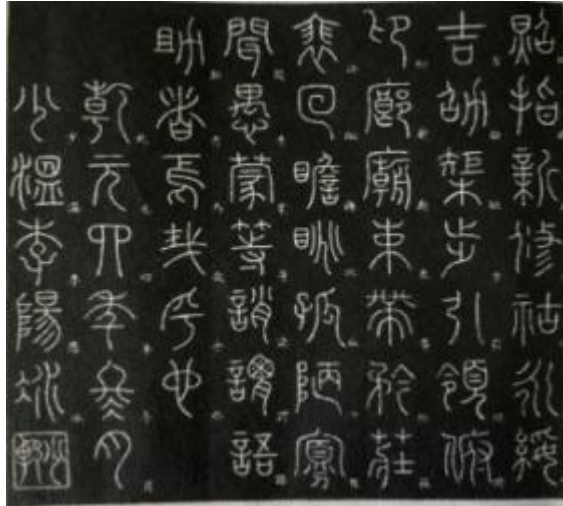 照指新修祜永綏
吉劭榘步引領俯
卬廊廟束帶矜莊
裴回瞻眺孤陋寡
聞愚蒙等誚謂語
助者焉哉乎也
乾元四年冬月
少溫李陽冰